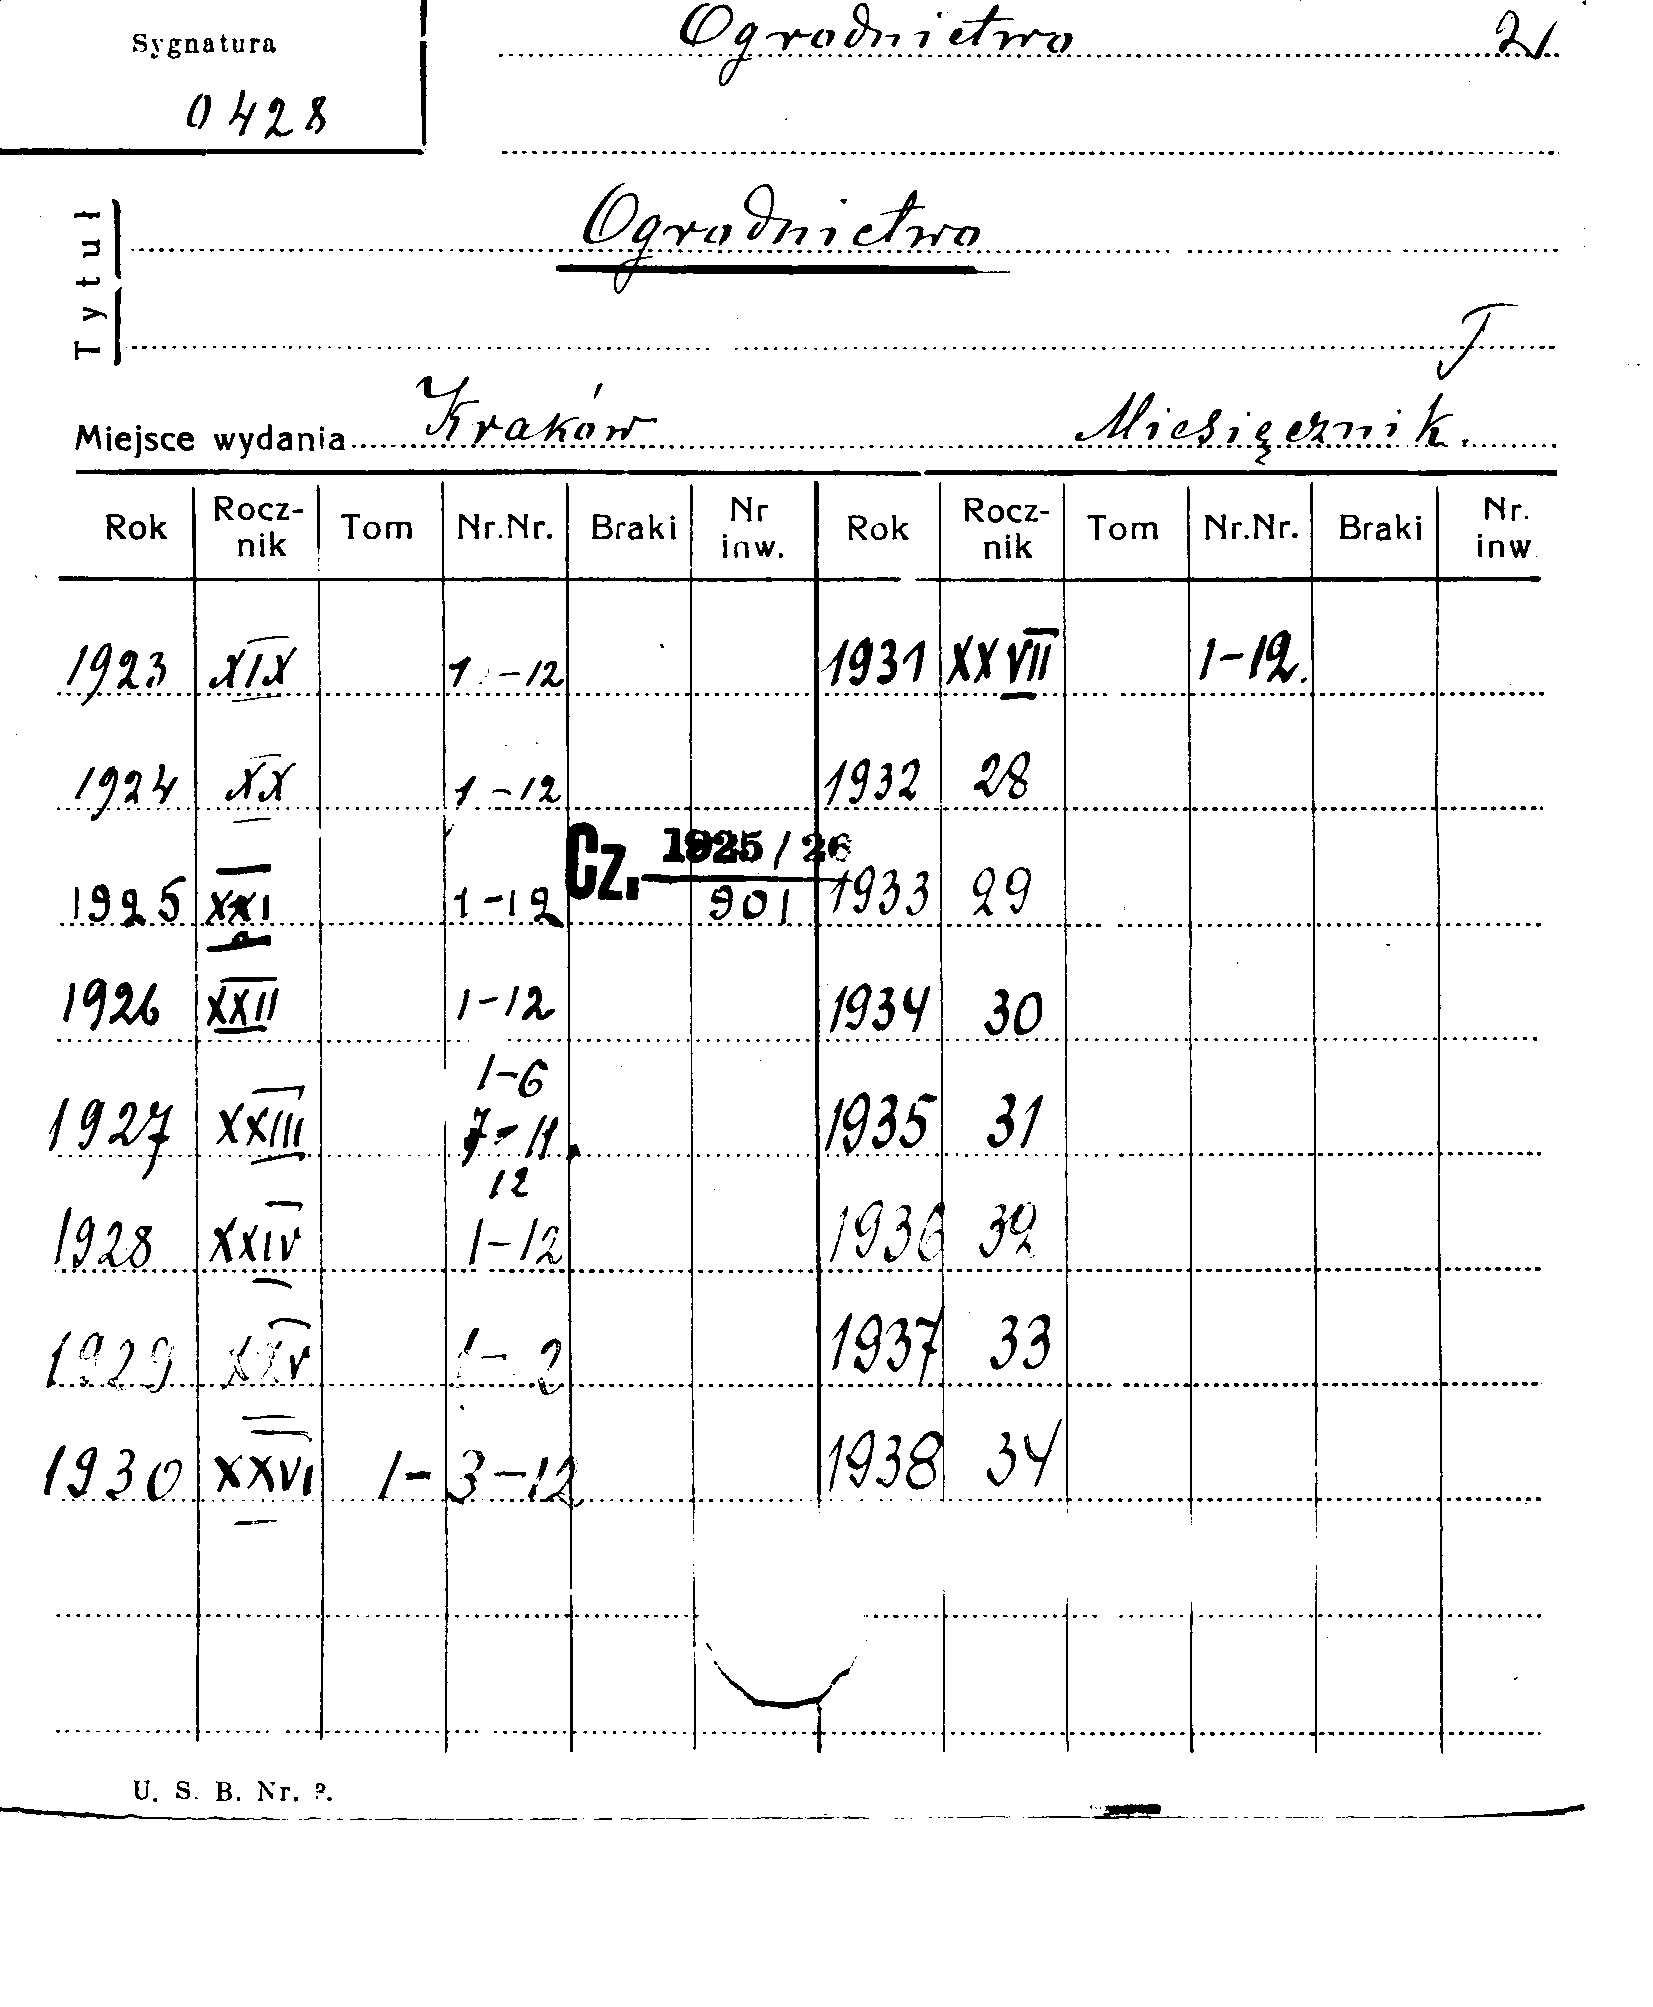 Sygnatura
0428
Ogrodnictwo 2
Tytuł
Ogrodnictwo
T
Miejsce wydania Kraków Miesięcznik.
Rok Rocz-nik Tom Nr.Nr. Braki Nr inw. Rok Rocz-nik Tom Nr.Nr. Braki Nr. inw
1923 XIX 1-12 1931 XXVII 1-12.
1924 XX 1-12 1932 28
Cz. 1925/26
901
1925 XXI 1-12 1933 29
1926 XXII 1-12 1934 30
1-6
1927 XXIII 7-11. 1935 31
12
1928 XXIV 1-12 1936 32
1929 XXV 1- 2 1937 33
1930 XXVI 1-3-12 1938 34
U. S. B. Nr.